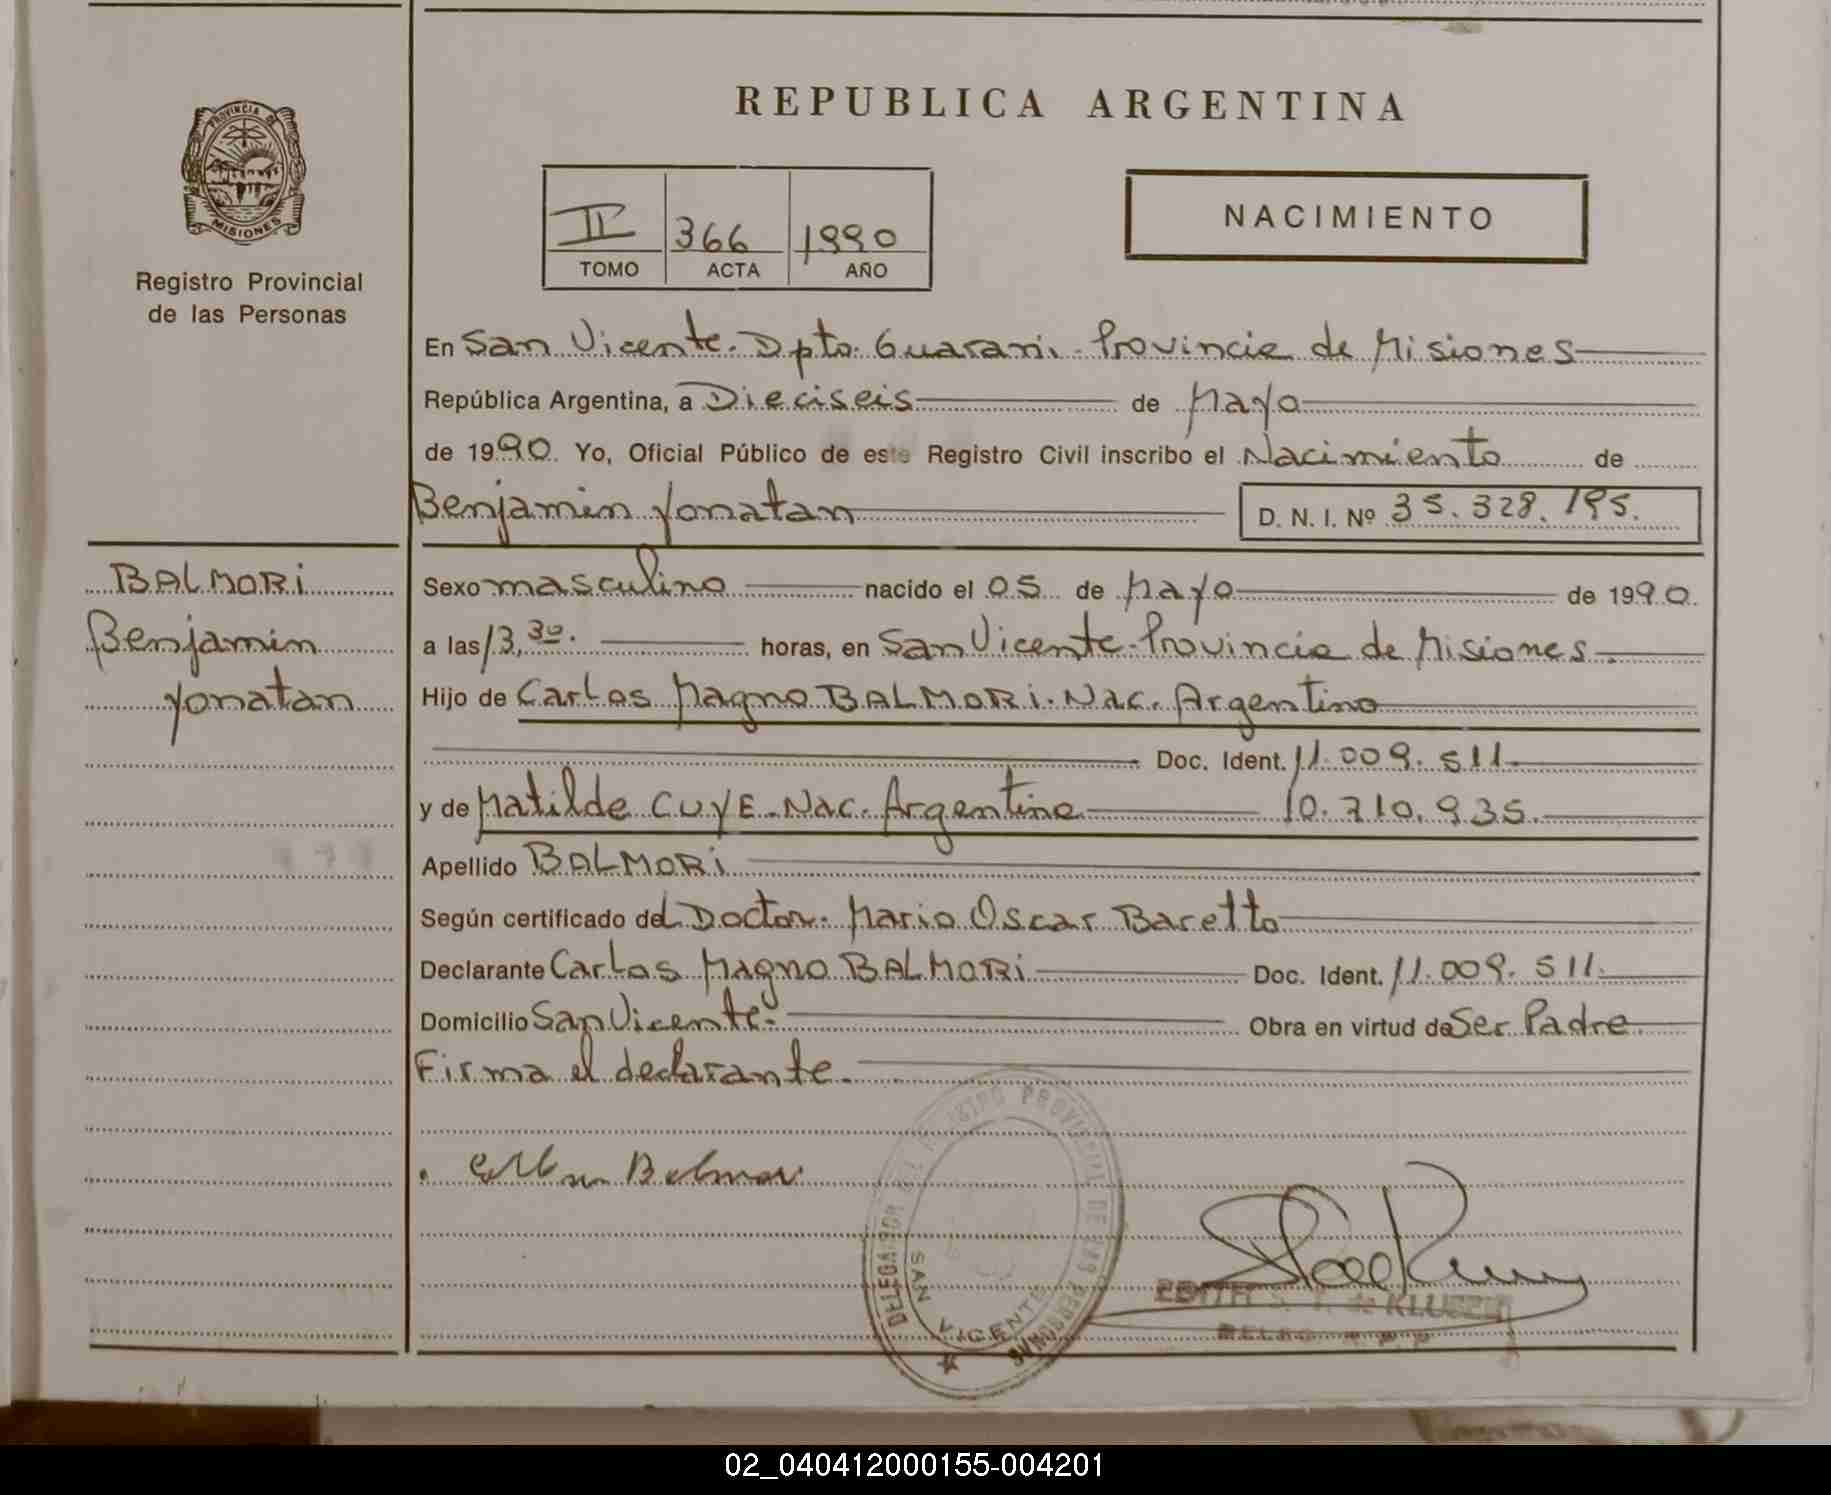 REPUBLICA ARGENTINA
PROVINCIA D
MISIONES
Registro Provincial
de las Personas
II 366 1990
TOMO ACTA AÑO
NACIMIENTO
En San Vicente. Dpto. Guarani. Provincia de Misiones
República Argentina, a Dieciseis de Mayo
de 1990. Yo, Oficial Público de este Registro Civil inscribo el Nacimiento de
Benjamin Yonatan D. N. I. Nº 35.328.195.
BALMORi
Benjamin
Yonatan
Sexo masculino nacido el 05 de Mayo de 1990.
a las 13,30. horas, en San Vicente. Provincia de Misiones.
Hijo de Carlos Magno BALMORi. Nac. Argentino
Doc. Ident. 11.009.511.
y de Matilde CUYE. Nac. Argentina 10.710.935.
Apellido BALMORi
Según certificado del Doctor. Mario Oscar Baretto
Declarante Carlos Magno BALMORi Doc. Ident. 11.009.511.
Domicilio San Vicente. Obra en virtud de Ser Padre
Firma el declarante.
Balmori
DELEGACION DEL REGISTRO PROVINCIAL DE LAS PERSONAS
SAN VICENTE
EDITH S. T. de
02_040412000155-004201